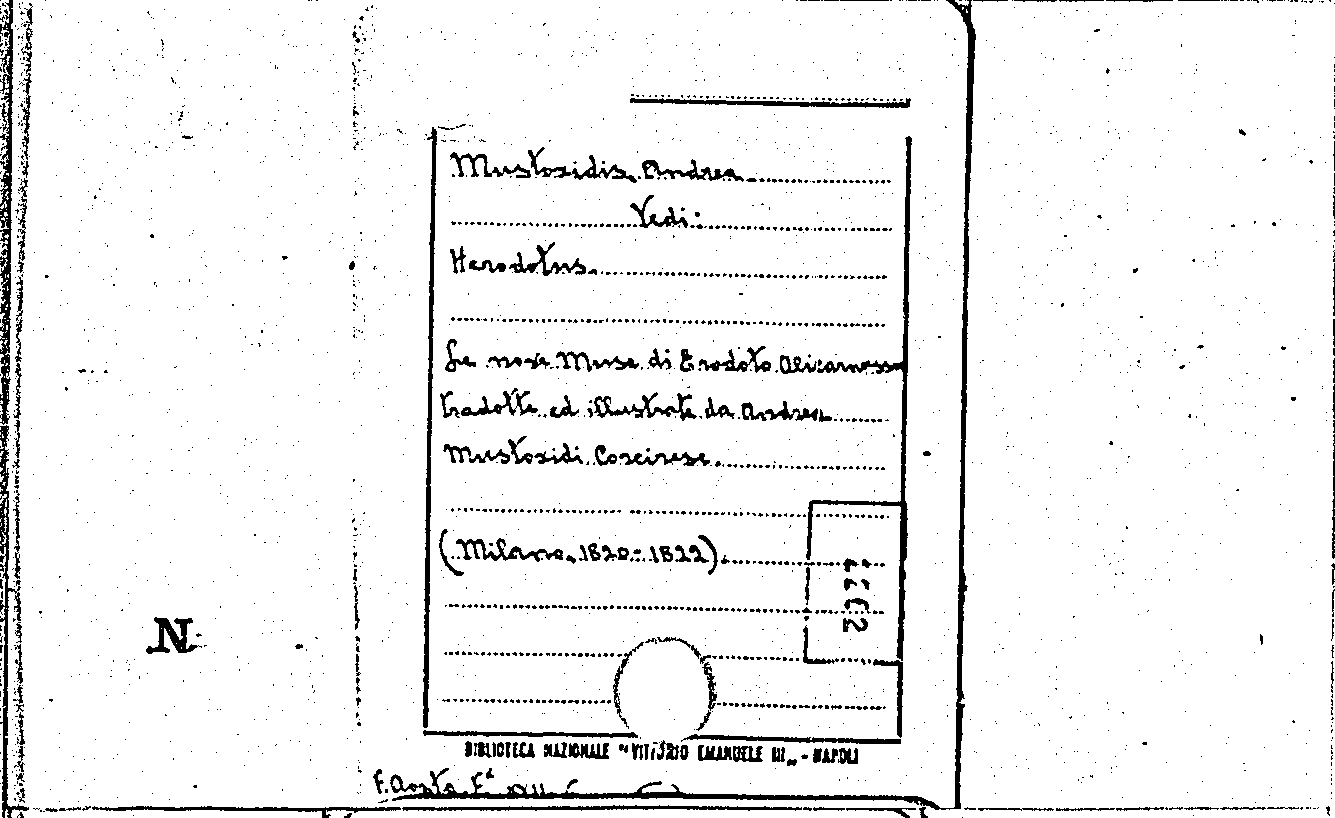 Mustoxidis, Andrea
Vedi:
Herodotus.
Le nove Muse di Erodoto Alicarnasseo
tradotte ed illustrate da Andrea
Mustoxidi Corcirese.
(Milano, 1820-1822).
N
BIBLIOTECA NAZIONALE "VITTORIO EMANUELE III" - NAPOLI
F. Aosta